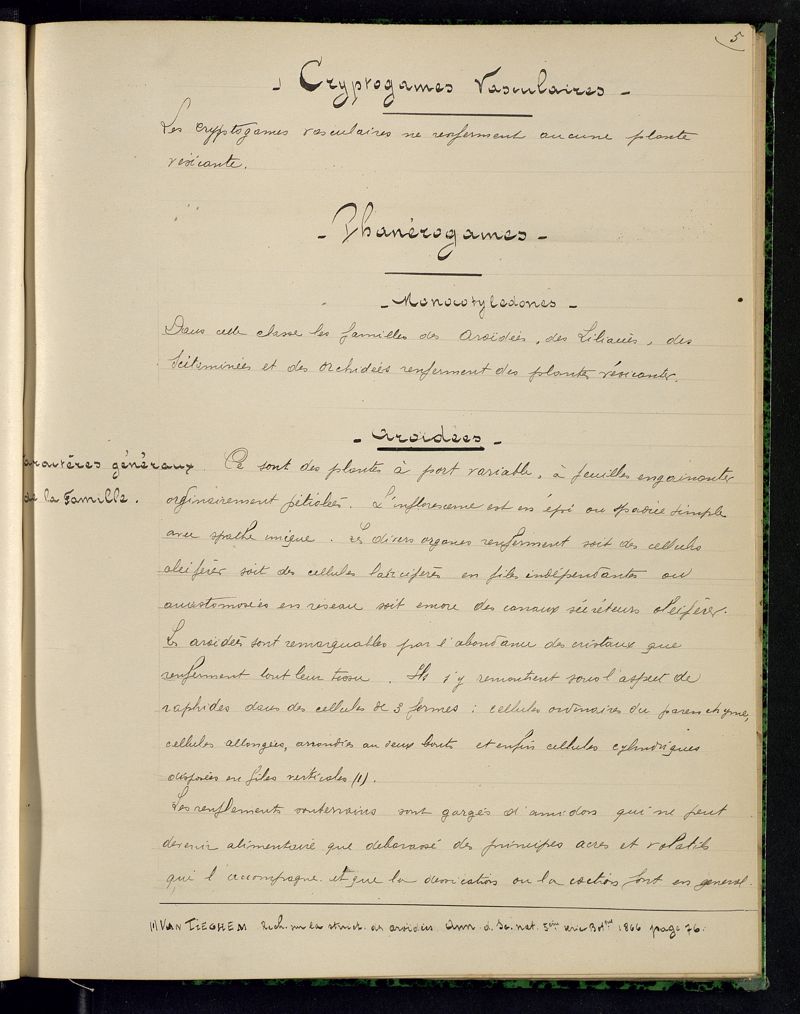 5
- Cryptogames Vasculaires -
Les cryptogames vasculaires ne renferment aucune plante
vésicante.
- Phanérogames -
- Monocotyledones -
Dans cette classe les familles des Aroïdées, des Liliacées, des
Scitaminées et des Orchidées renferment des plantes vésicantes.
- Aroïdées -
Caractères généraux
de la Famille.
Ce sont des plantes à port variable, à feuilles engainantes
ordinairement pétiolées. L'inflorescence est en épi ou spadice simple
avec spathe unique. Les divers organes renferment soit des cellules
oleifères soit des cellules laticifères en files indépendantes ou
anastomosées en réseau soit encore des canaux sécréteurs oleifères.
Les aroïdées sont remarquables par l'abondance des cristaux que
renferment tout leur tissu. Ils s'y remontrent sous l'aspect de
raphides dans des cellules de 3 formes : cellules ordinaires du parenchyme,
cellules allongées, arrondies aux deux bouts et enfin cellules cylindriques
disposées en files verticales (1).
Les renflements souterrains sont gorgés d'amidon qui ne peut
devenir alimentaire que debarassé des principes acres et volatils
qui l'accompagne et que la dessication ou la coction font en general
(1) VAN TIEGHEM Rech. sur la struct. des aroïdées Ann. d. Sc. nat. 5ème serie Botque 1866 page 76.